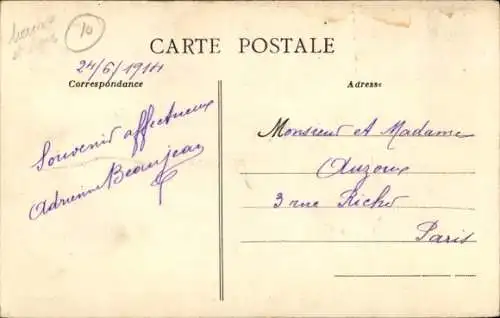 10
CARTE POSTALE
24/6/1914
Correspondance
Adresse
Souvenir affectueux
Adrienne Beaujean
Monsieur et Madame
Auzoux
3 rue Richer
Paris